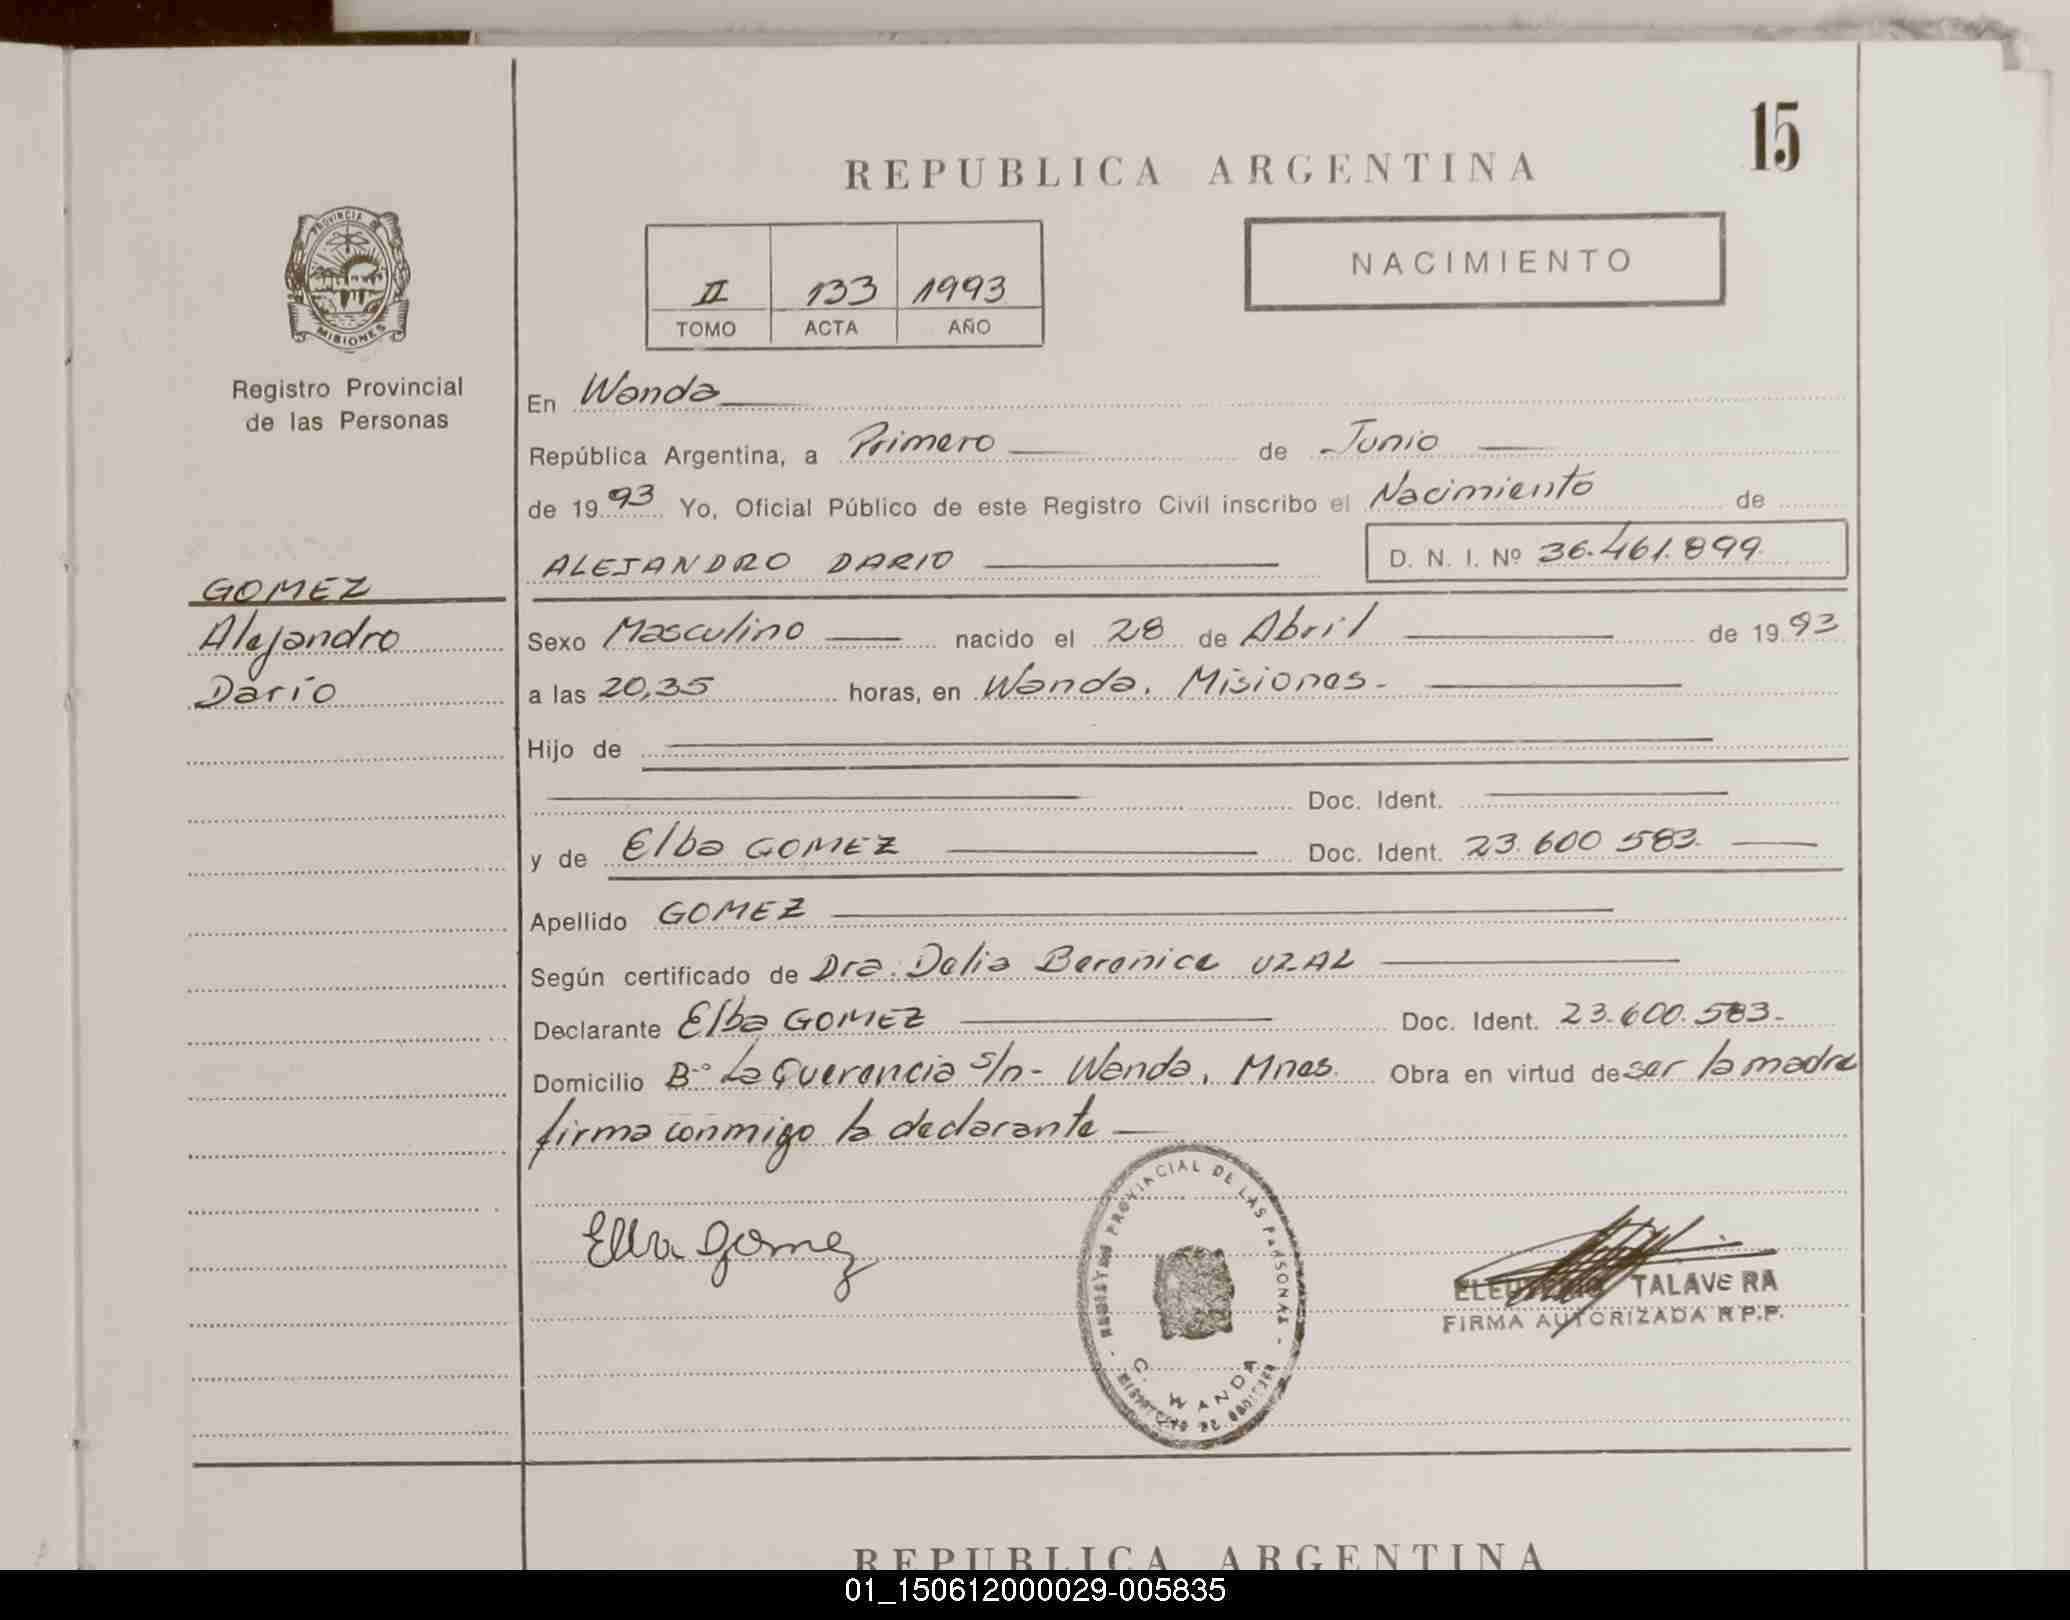 15
REPUBLICA ARGENTINA
NACIMIENTO
II 133 1993
TOMO ACTA AÑO
PROVINCIA DE
MISIONES
Registro Provincial
de las Personas
En Wanda
República Argentina, a Primero de Junio
de 1993 Yo, Oficial Público de este Registro Civil inscribo el Nacimiento de
ALEJANDRO DARIO D. N. I. Nº 36.461.899
GOMEZ
Alejandro
Darío
Sexo Masculino nacido el 28 de Abril de 1993
a las 20,35 horas, en Wanda, Misiones.-
Hijo de
Doc. Ident.
y de Elba GOMEZ Doc. Ident. 23.600 583.
Apellido GOMEZ
Según certificado de Dra. Delia Berenice UZAL
Declarante Elba GOMEZ Doc. Ident. 23.600.583.-
Domicilio Bº La Querencia s/n - Wanda, Mnes. Obra en virtud de ser la madre
firma conmigo la declarante
Elba Gomez
REGISTRO PROVINCIAL DE LAS PERSONAS
WANDA
TALAVERA
FIRMA AUTORIZADA R.P.P.
REPUBLICA ARGENTINA
01_150612000029-005835